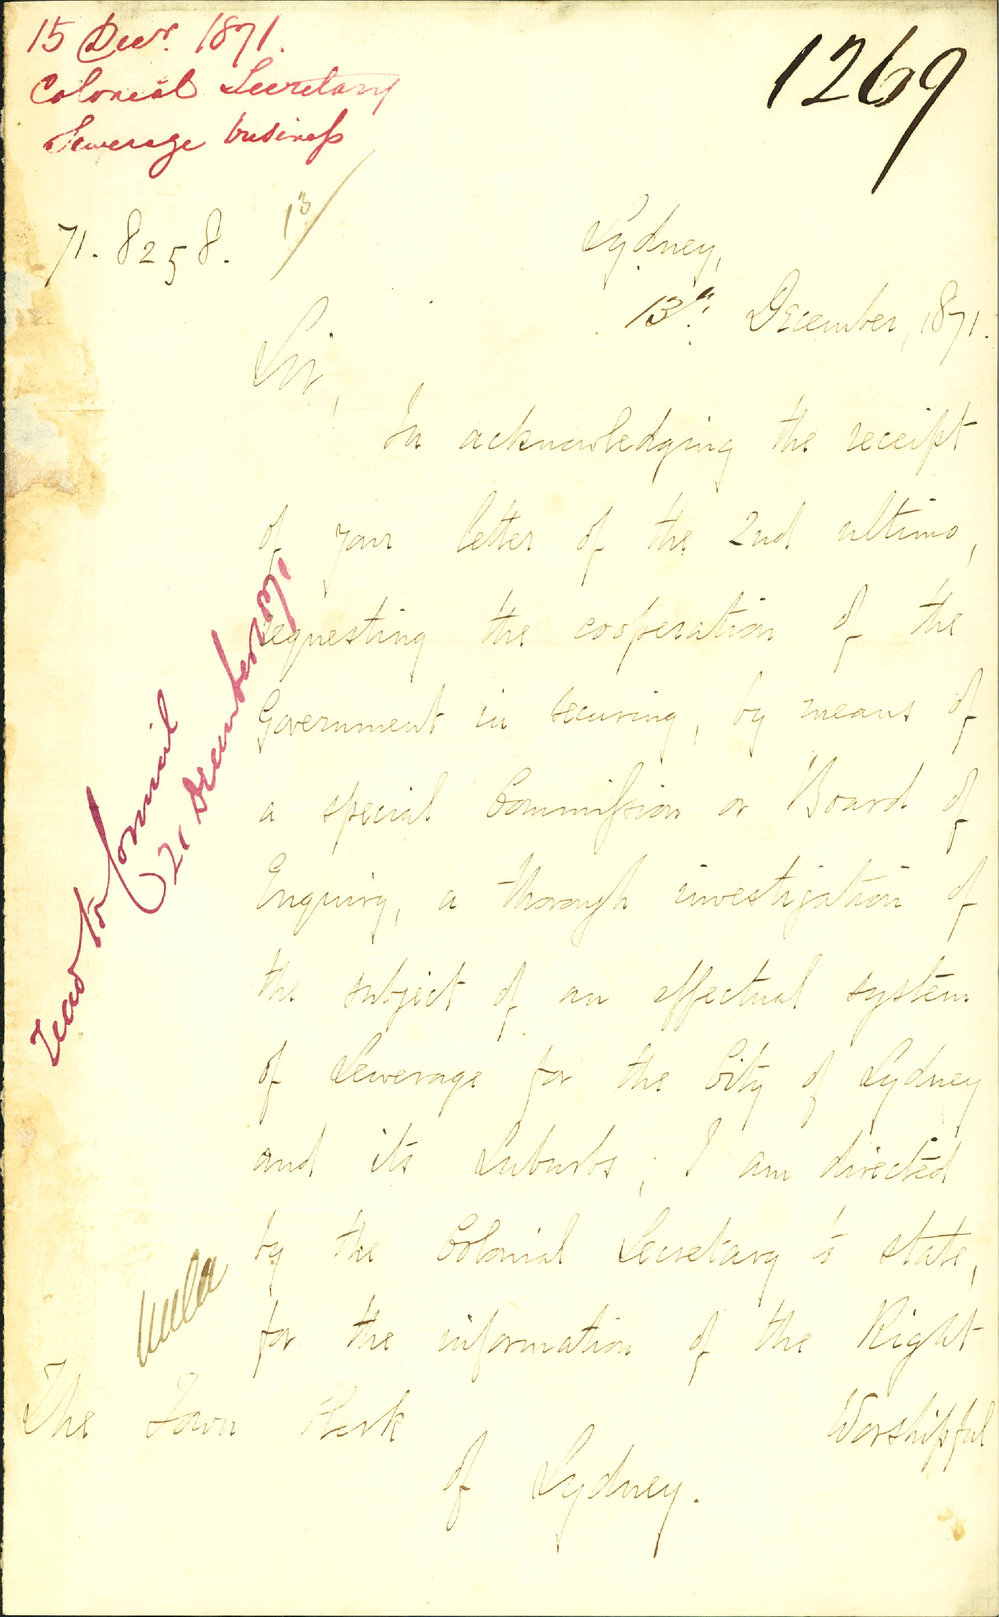 15 Decr. 1871.
Colonial Secretary
Sewerage business
1269
71. 8258.
13/
Sydney,
13th December, 1871.
Sir,
In acknowledging the receipt
of your letter of the 2nd ultimo,
requesting the cooperation of the
Government in securing, by means of
a special Commission or Board of
Enquiry, a thorough investigation of
the subject of an effectual system
of Sewerage for the City of Sydney
and its Suburbs; I am directed
by the Colonial Secretary to state,
for the information of the Right
Worshipful
The Town Clerk
of Sydney.
read to Council
21 December 1871